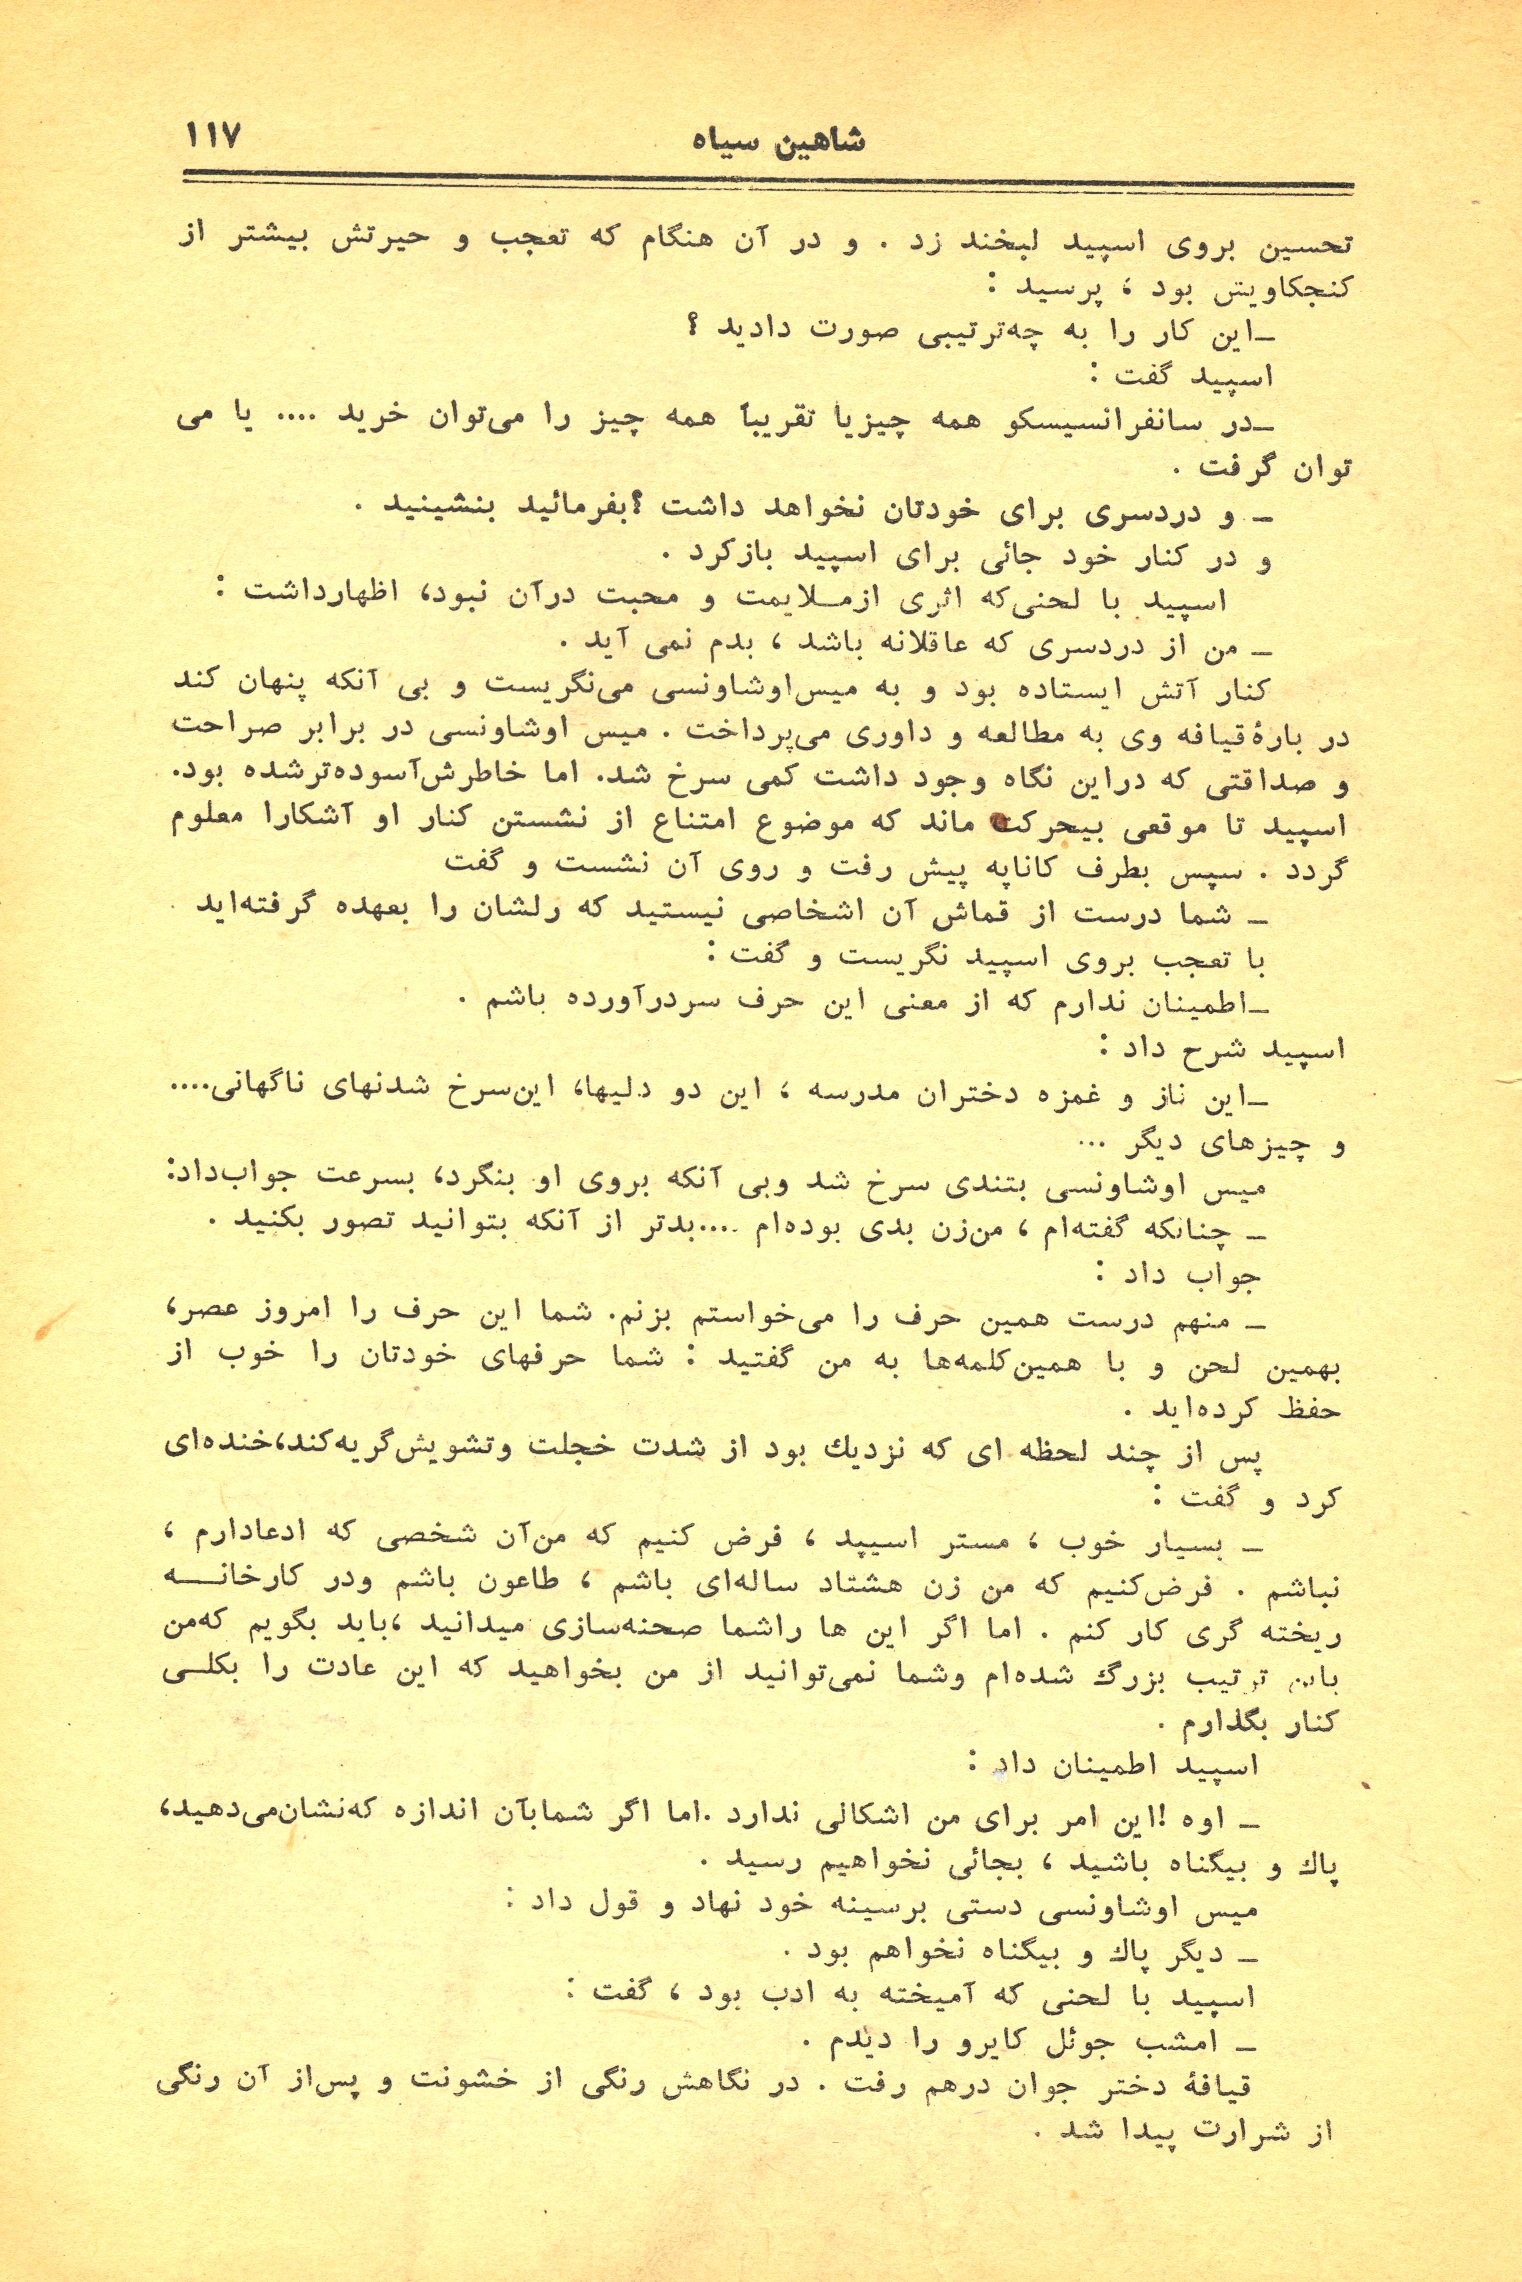 شاهین سیاه
۱۱۷
تحسین بروی اسپید لبخند زد . و در آن هنگام که تعجب و حیرتش بیشتر از
کنجکاویش بود ، پرسید :
ـ‌این کار را به چه‌ترتیبی صورت دادید ؟
اسپید گفت :
ـ‌در سانفرانسیسکو همه چیزیا تقریباً همه چیز را می‌توان خرید .... یا می
توان گرفت .
ـ و دردسری برای خودتان نخواهد داشت ؟بفرمائید بنشینید .
و در کنار خود جائی برای اسپید بازکرد .
اسپید با لحنی‌که اثری ازمـلایمت و محبت درآن نبود، اظهارداشت :
ـ من از دردسری که عاقلانه باشد ، بدم نمی آید .
کنار آتش ایستاده بود و به میس‌اوشاونسی می‌نگریست و بی آنکه پنهان کند
در بارهٔ‌قیافه وی به مطالعه و داوری می‌پرداخت . میس اوشاونسی در برابر صراحت
و صداقتی که دراین نگاه وجود داشت کمی سرخ شد. اما خاطرش‌آسوده‌ترشده بود.
اسپید تا موقعی بیحرکت ماند که موضوع امتناع از نشستن کنار او آشکارا معلوم
گردد . سپس بطرف کاناپه پیش رفت و روی آن نشست و گفت
ـ شما درست از قماش آن اشخاصی نیستید که رلشان را بعهده گرفته‌اید .
با تعجب بروی اسپید نگریست و گفت :
ـ‌اطمینان ندارم که از معنی این حرف سردرآورده باشم .
اسپید شرح داد :
ـ‌این ناز و غمزه دختران مدرسه ، این دو دلیها، این‌سرخ شدنهای ناگهانی....
و چیزهای دیگر ...
میس اوشاونسی بتندی سرخ شد وبی آنکه بروی او بنگرد، بسرعت جواب‌داد:
ـ چنانکه گفته‌ام ، من‌زن بدی بوده‌ام ....بدتر از آنکه بتوانید تصور بکنید .
جواب داد :
ـ منهم درست همین حرف را می‌خواستم بزنم. شما این حرف را امروز عصر،
بهمین لحن و با همین‌کلمه‌ها به من گفتید : شما حرفهای خودتان را خوب از
حفظ کرده‌اید .
پس از چند لحظه ای که نزدیك بود از شدت خجلت وتشویش‌گریه‌کند،خنده‌ای
کرد و گفت :
ـ بسیار خوب ، مستر اسپید ، فرض کنیم که من‌آن شخصی که ادعادارم ،
نباشم . فرض‌کنیم که من زن هشتاد ساله‌ای باشم ، طاعون باشم ودر کارخانـه
ریخته گری کار کنم . اما اگر این ها راشما صحنه‌سازی میدانید ،باید بگویم که‌من
باین ترتیب بزرگ شده‌ام وشما نمی‌توانید از من بخواهید که این عادت را بکلـی
کنار بگذارم .
اسپید اطمینان داد :
ـ اوه !این امر برای من اشکالی ندارد .اما اگر شمابآن اندازه که‌نشان‌می‌دهید،
پاك و بیگناه باشید ، بجائی نخواهیم رسید .
میس اوشاونسی دستی برسینه خود نهاد و قول داد :
ـ دیگر پاك و بیگناه نخواهم بود .
اسپید با لحنی که آمیخته به ادب بود ، گفت :
ـ امشب جوئل کایرو را دیدم .
قیافهٔ دختر جوان درهم رفت . در نگاهش رنگی از خشونت و پس‌از آن رنگی
از شرارت پیدا شد .